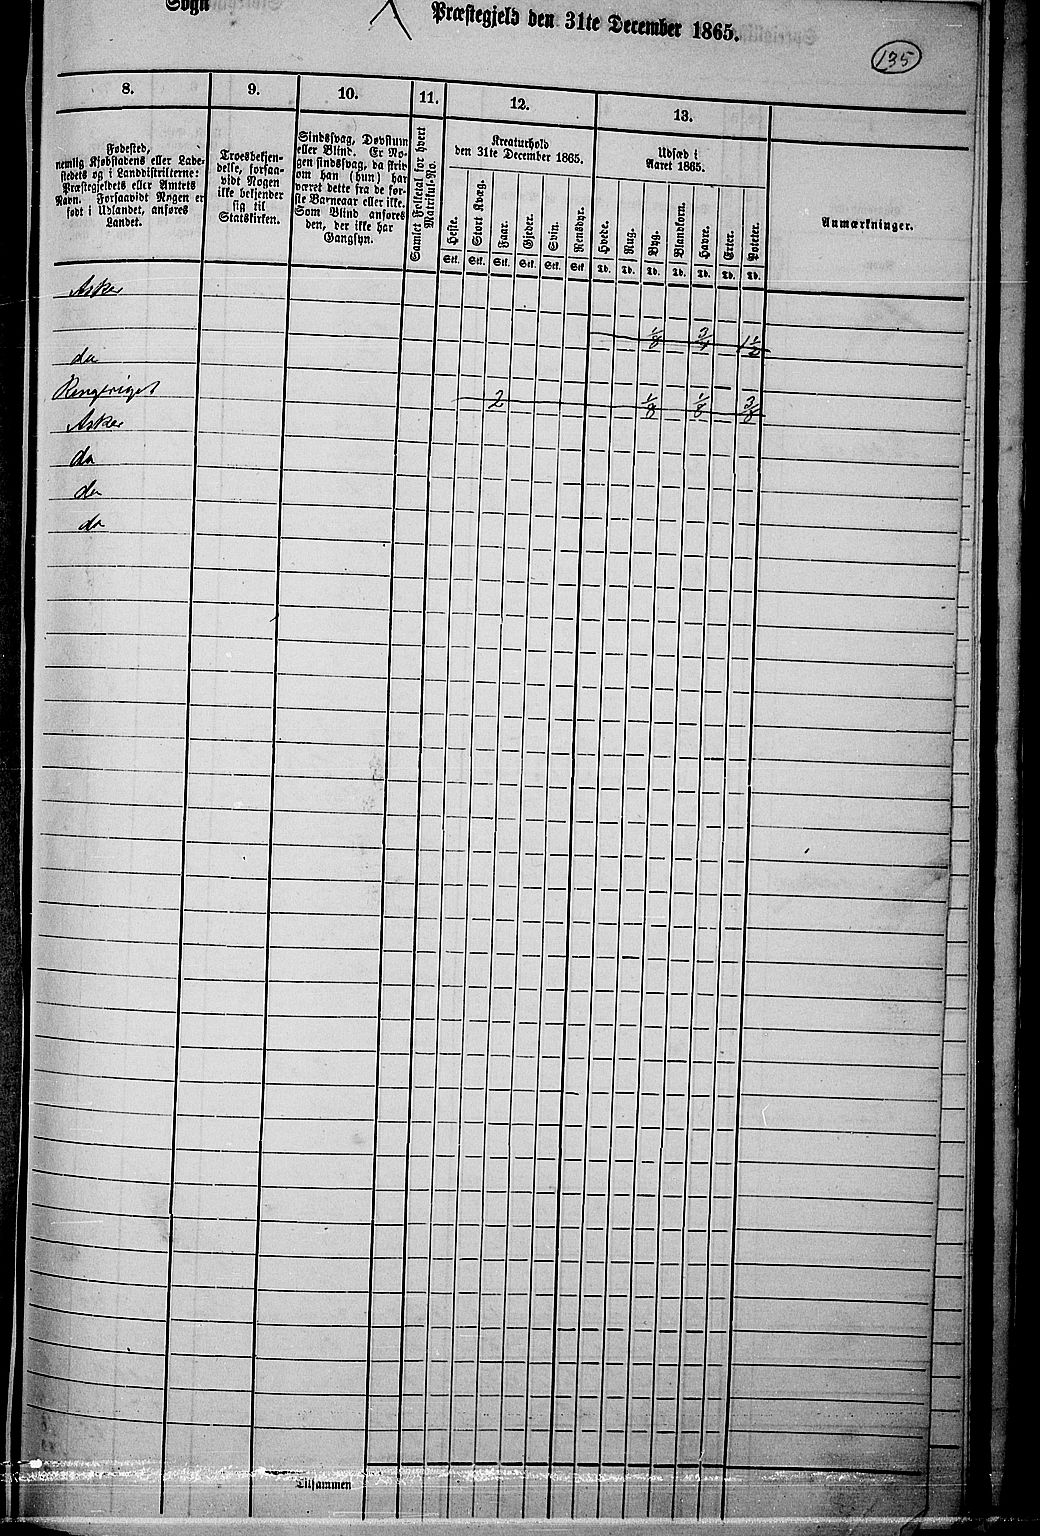 Sogn
Præstegjeld den 31te December 1865.
135
8.
9.
10.
11.
12.
13.
Fødested,
nemlig Kjøbstadens eller Lade-
stedets og i Landdistrikterne:
Præstegjeldets eller Amtets
Navn. Forsaavidt Nogen er
født i Udlandet, anføres
Landet.
Troesbekjen-
delse, forsaa-
vidt Nogen
ikke bekjender
sig til
Statskirken.
Sindssvag, Døvstum
eller Blind. Er No-
gen sindssvag, da skriv
om han (hun) har
været dette fra de før-
ste Barneaar eller ikke.
Som Blind anføres
den, der ikke har
Gangsyn.
Samlet Folketal for hvert
Matrikul-No.
Kreaturhold
den 31te December 1865.
Heste.
Stort Kvæg.
Faar.
Gjeder.
Svin.
Rensdyr.
Stk. Stk. Stk. Stk. Stk. Stk
Udsæd i
Aaret 1865.
Hvede.
Rug.
Byg.
Blandkorn.
Havre.
Erter.
Poteter.
Td. Td. Td. Td. Td. Td. Td.
Anmærkninger.
Asker
1/8 3/4 1 1/2
do
Ringeriget
2 1/8 1/8 3/8
Asker
do
do
do
Tilsammen